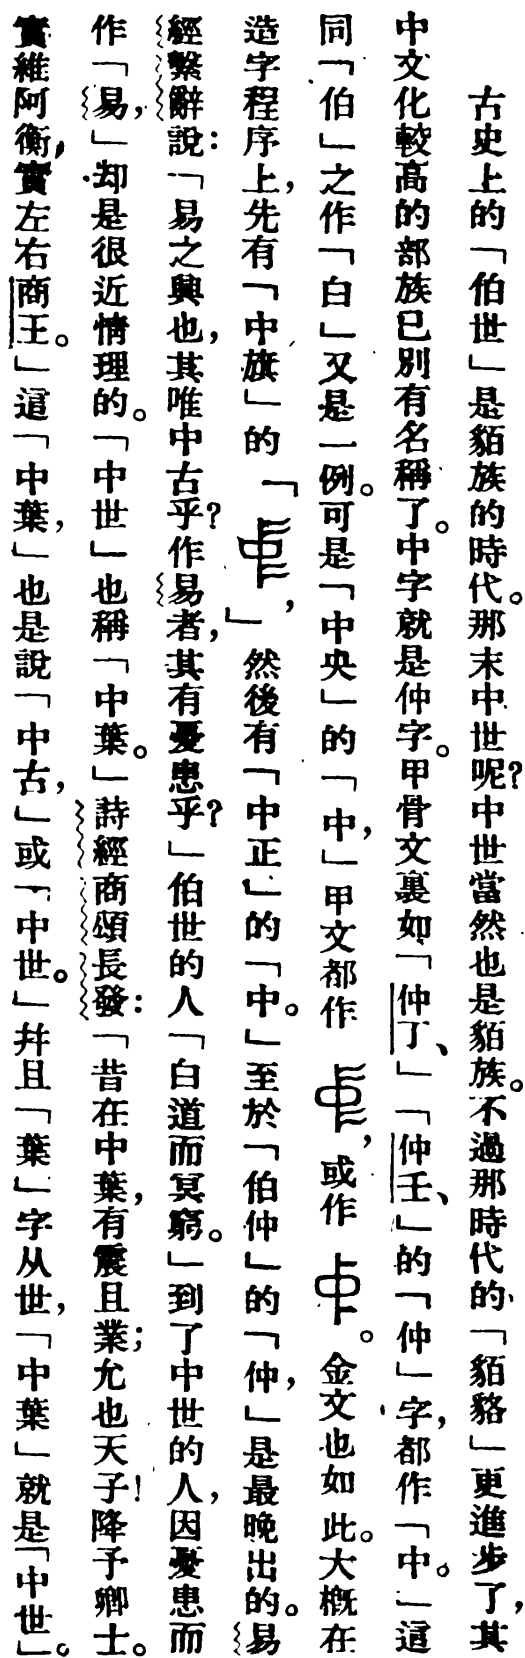 古史上的「伯世」是貊族的時代。那末中世呢?中世當然也是貊族。不過那時代的「貊貉」更進步了,其
中文化較高的部族已別有名稱了。中字就是仲字。甲骨文裏如「仲丁、」「仲壬、」的「仲」字,都作「中。」這
同「伯」之作「白」又是一例。可是「中央」的「中,」甲文都作,或作。金文也如此。大概在
造字程序上,先有「中旗」的「,」然後有「中正」的「中。」至於「伯仲」的「仲,」是最晚出的。易
經繫辭說:「易之興也,其唯中古乎?作易者,其有憂患乎?」伯世的人「白道而冥窮。」到了中世的人,因憂患而
作「易,」却是很近情理的。「中世」也稱「中葉。」詩經商頌長發:「昔在中葉,有震且業;允也天子!降予卿士。
實維阿衡,實左右商王。」這「中葉,」也是說「中古,」或「中世。」幷且「葉」字从世,「中葉」就是「中世」。